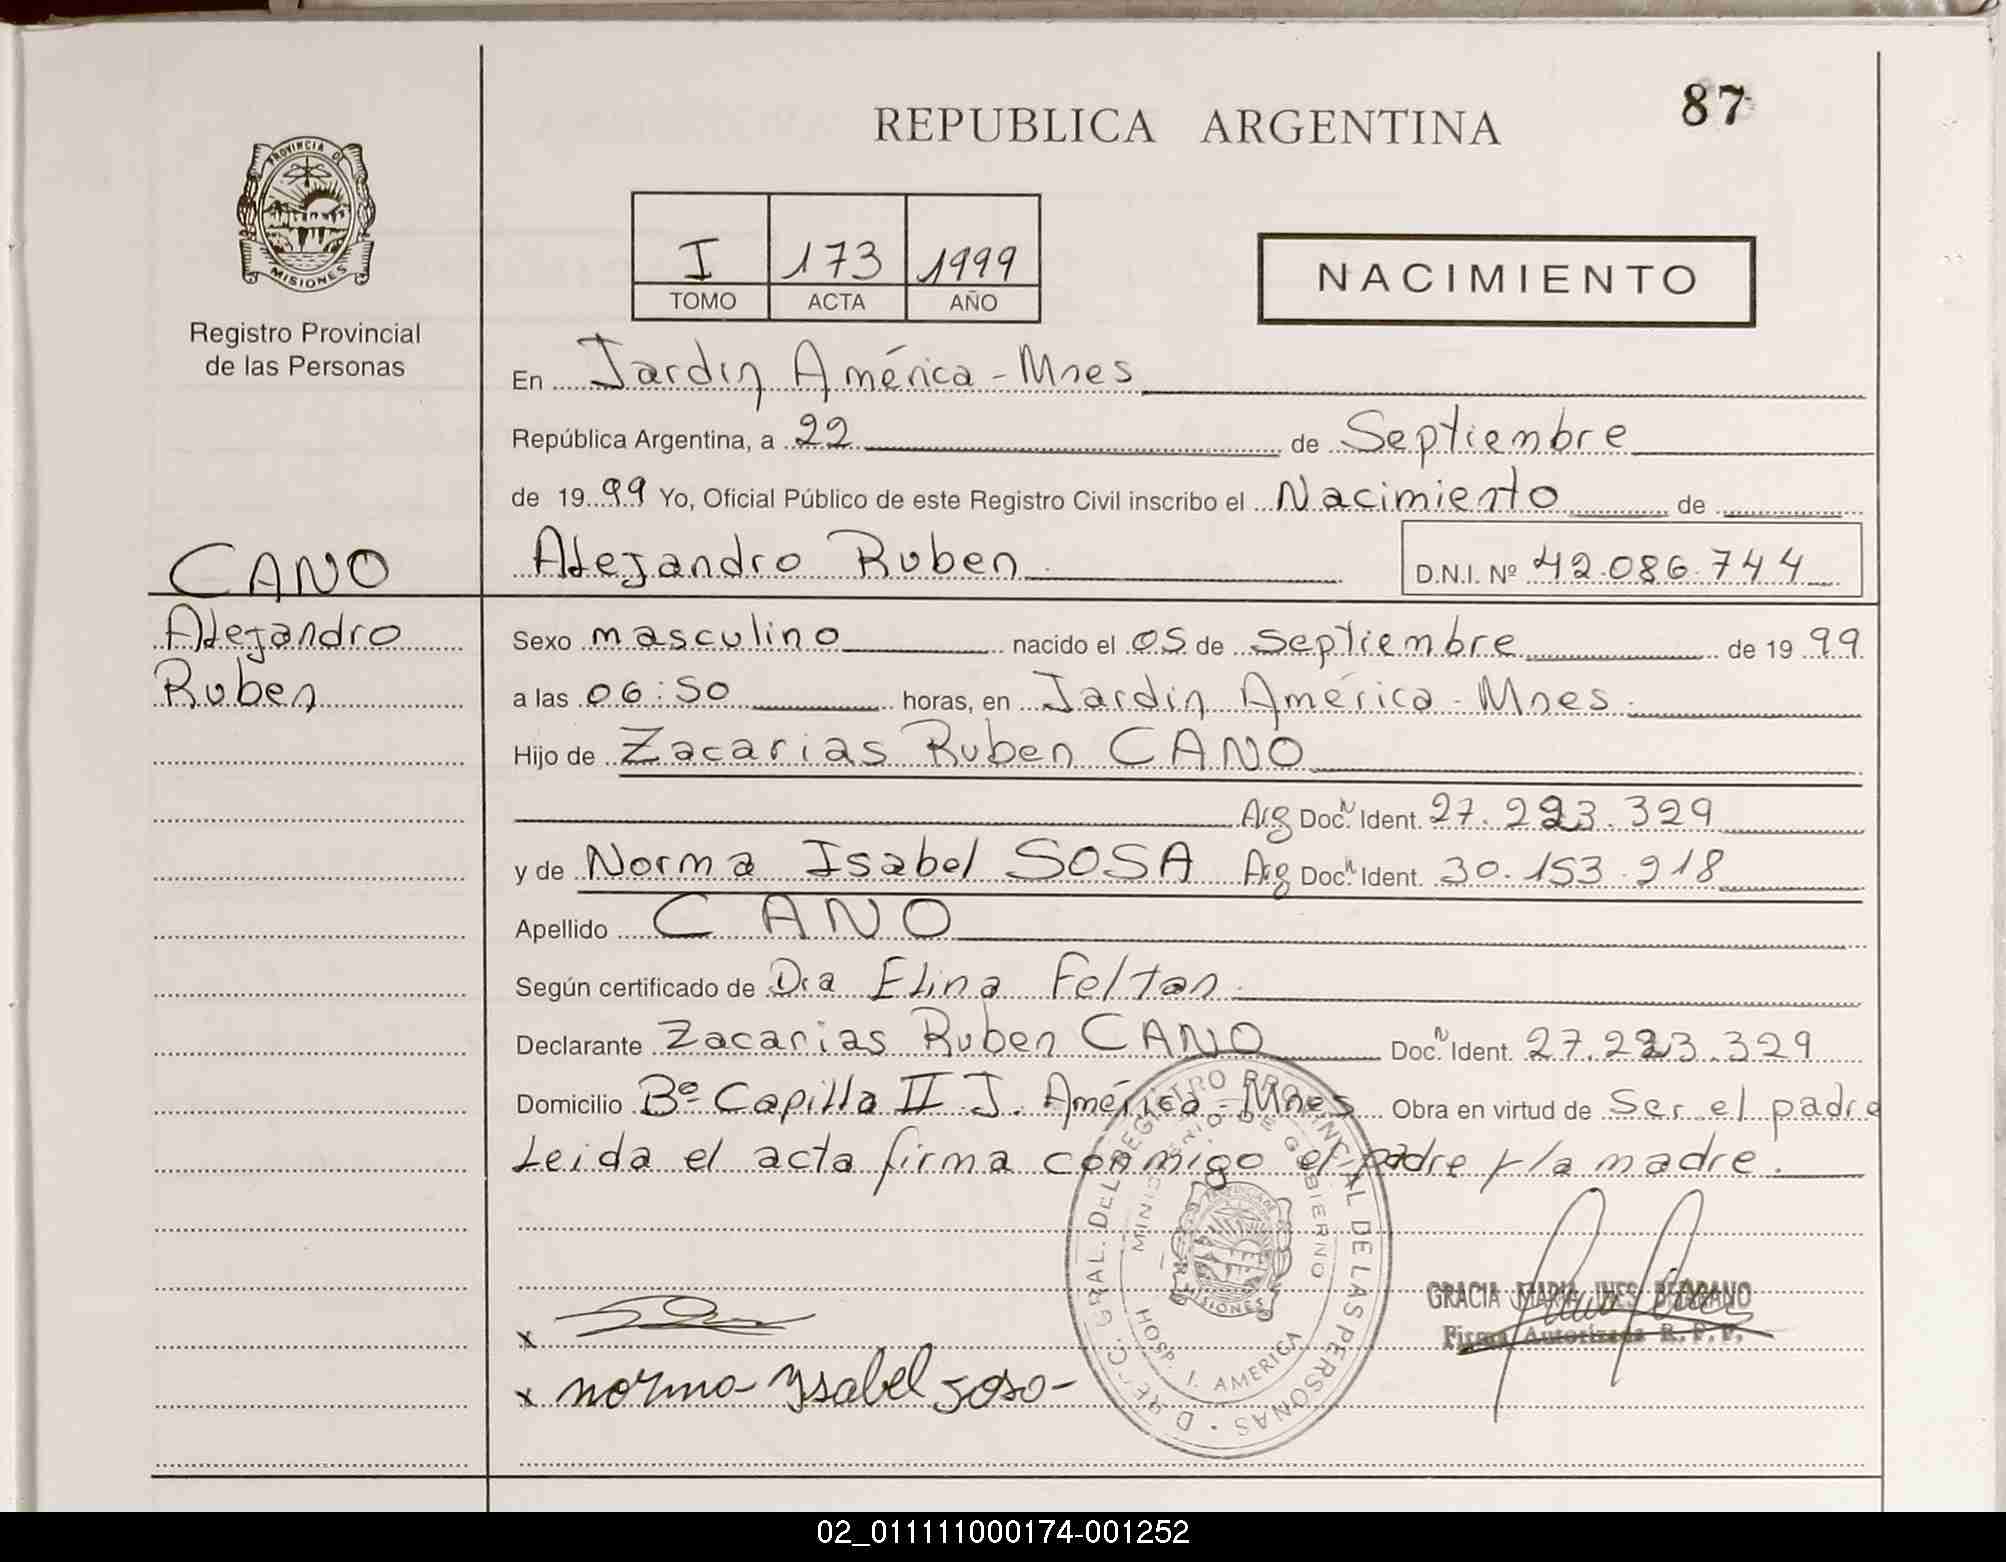 87
REPUBLICA ARGENTINA
PROVINCIA DE
MISIONES
Registro Provincial
de las Personas
I 173 1999
TOMO ACTA AÑO
NACIMIENTO
En Jardin América - Mnes
República Argentina, a 22 de Septiembre
de 1999 Yo, Oficial Público de este Registro Civil inscribo el Nacimiento de
CANO
Alejandro Ruben
Alejandro Ruben D.N.I. Nº 42.086.744
Sexo masculino nacido el 05 de Septiembre de 1999
a las 06:50 horas, en Jardin América - Mnes.
Hijo de Zacarias Ruben CANO
Arg Doc. N Ident. 27.223.329
y de Norma Isabel SOSA Arg Doc. N Ident. 30.153.918
Apellido CANO
Según certificado de Dra Elina Feltan.
Declarante Zacarias Ruben CANO Doc. N Ident. 27.223.329
Domicilio Bº Capilla II J. América - Mnes Obra en virtud de Ser el padre
Leida el acta firma conmigo el padre y la madre.
DIREC. GRAL. DEL REGISTRO PROVINCIAL DE LAS PERSONAS
MINISTERIO DE GOBIERNO
PROVINCIA DE
MISIONES
HOSP. J. AMERICA
GRACIA MARIA INES
Firma Autorizada R. P. P.
x
x norma Ysabel sosa
02_011111000174-001252